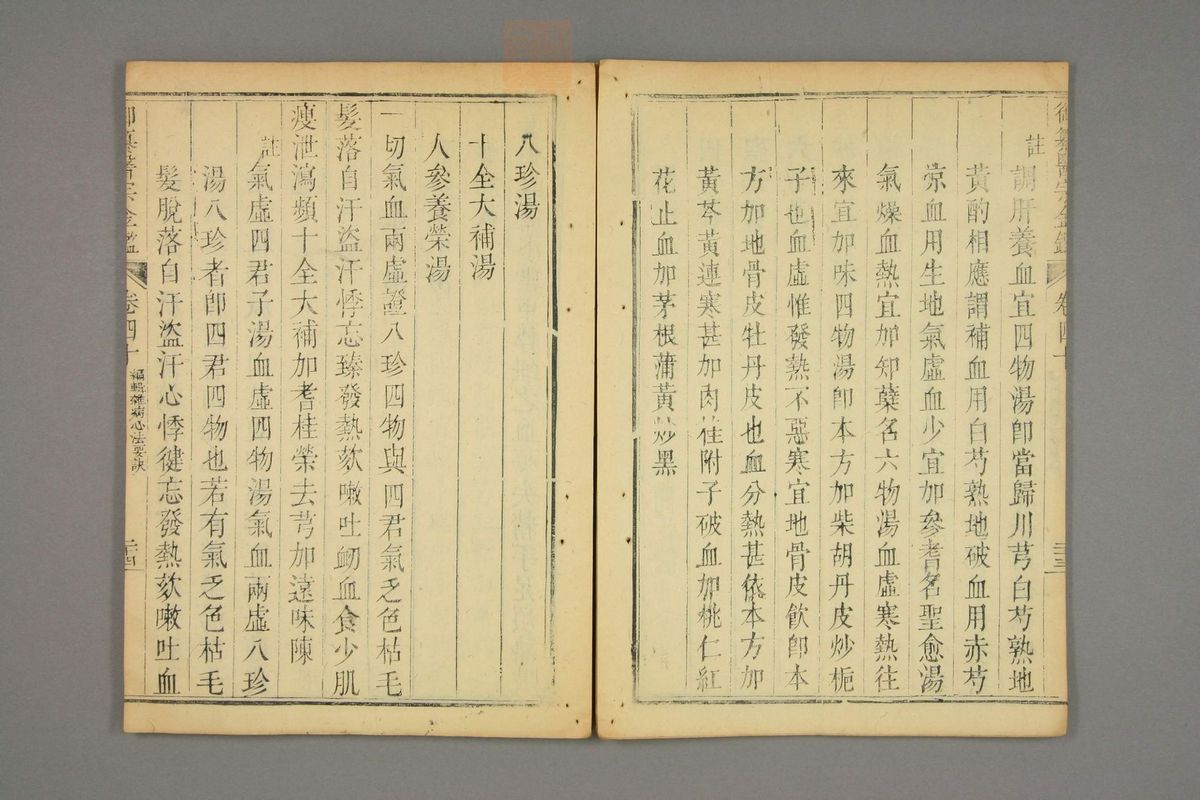 御纂醫宗金鑑 卷四十 三三
註
調肝養血宜四物湯卽當歸川芎白芍熟地
黃酌相應謂補血用白芍熟地破血用赤芍
涼血用生地氣虛血少宜加參耆名聖愈湯
氣燥血熱宜加知蘗名六物湯血虛寒熱往
來宜加味四物湯卽本方加柴胡丹皮炒梔
子也血虛惟發熱不惡寒宜地骨皮飮卽本
方加地骨皮牡丹皮也血分熱甚依本方加
黃芩黃連寒甚加肉桂附子破血加桃仁紅
花止血加茅根蒲黃炒黑
八珍湯
十全大補湯
人參養榮湯
一切氣血兩虛證八珍四物與四君氣乏色枯毛
髮落自汗盜汗悸忘臻發熱欬嗽吐衂血食少肌
瘦泄瀉頻十全大補加耆桂榮去芎加遠味陳
註
氣虛四君子湯血虛四物湯氣血兩虛八珍
湯八珍者卽四君四物也若有氣乏色枯毛
髮脫落自汗盜汗心悸健忘發熱欬嗽吐血
御纂醫宗金鑑 卷四十 編輯雜病心法要訣 三四